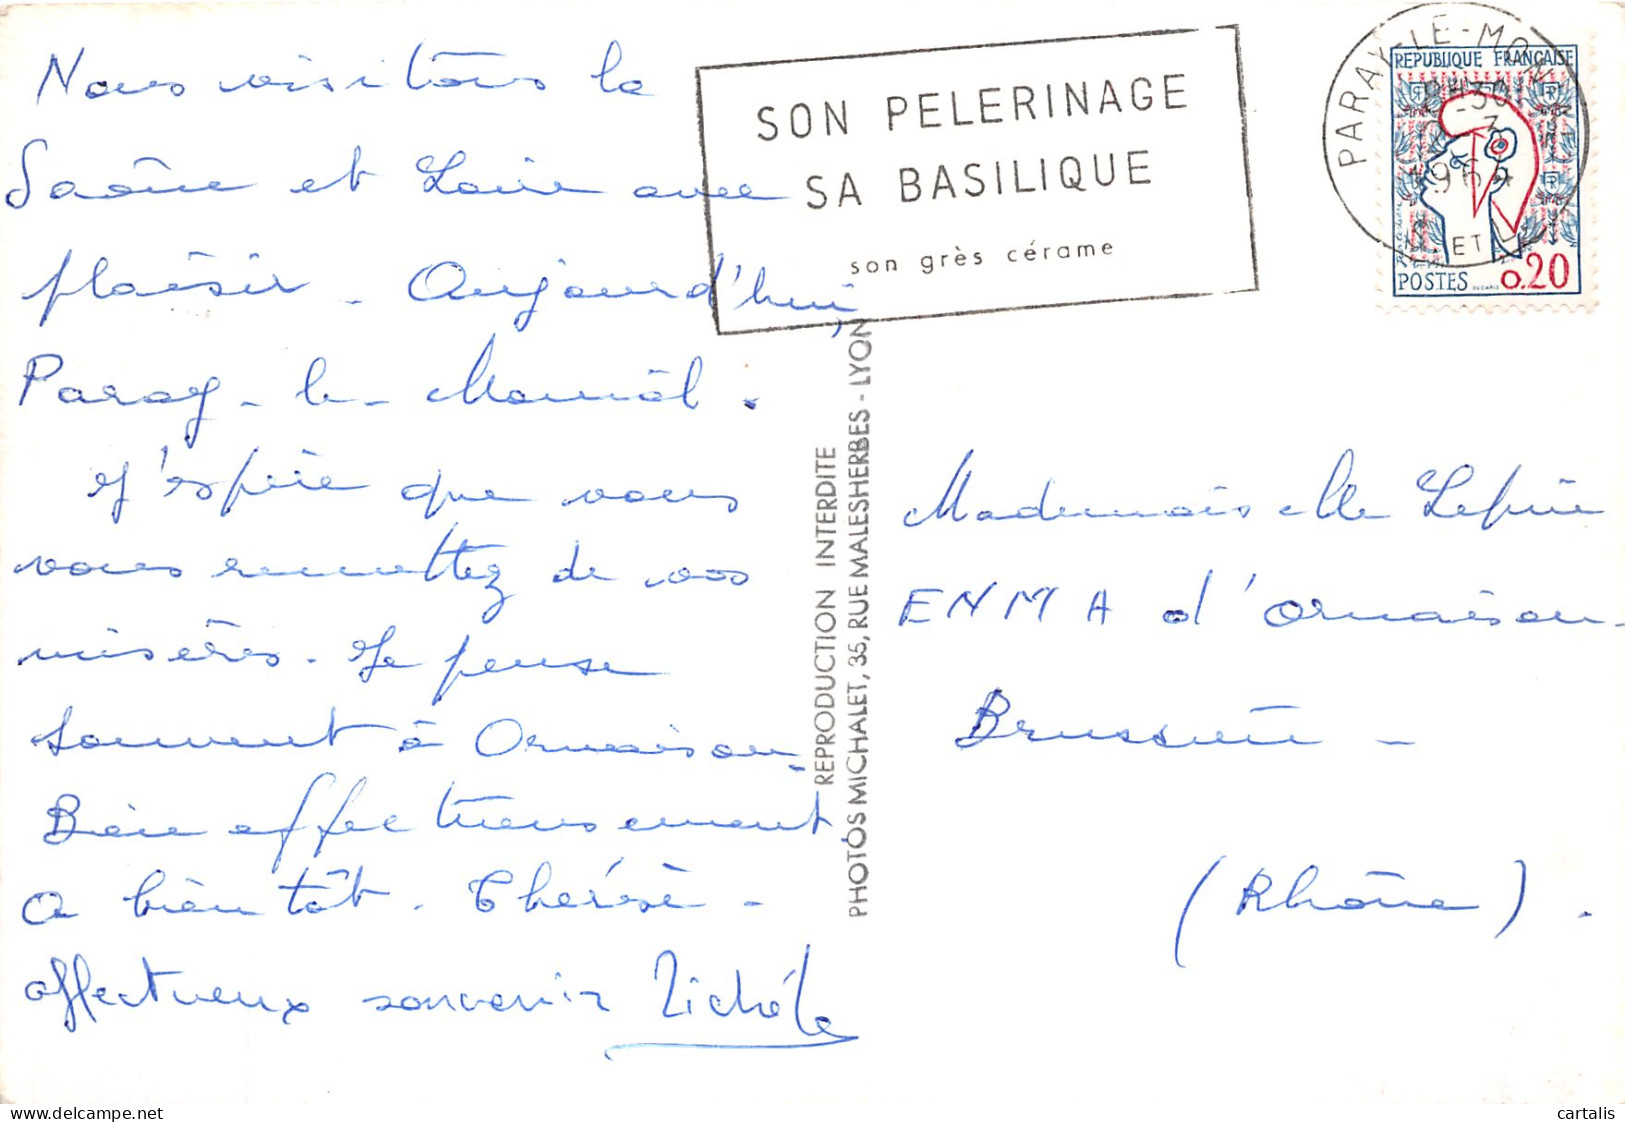 Nous visitons la
Saône et Loire avec
plaisir - Aujourd'hui,
Paray-le-Monial.
J'espère que vous
vous remettez de vos
misères. Je pense
souvent à Ormaison.
Bien affectueusement
A bientôt. Thérèse -
affectueux souvenir Michèle
SON PELERINAGE
SA BASILIQUE
son grès cérame
PARAY-LE-MON
9H30
1964
ET L
REPUBLIQUE FRANÇAISE
POSTES 0.20
REPRODUCTION INTERDITE
PHOTOS MICHALET, 35, RUE MALESHERBES - LYON
Mademoiselle Lepine
ENMA d'Ormaison-
Brussieu -
(Rhône).
cartalis